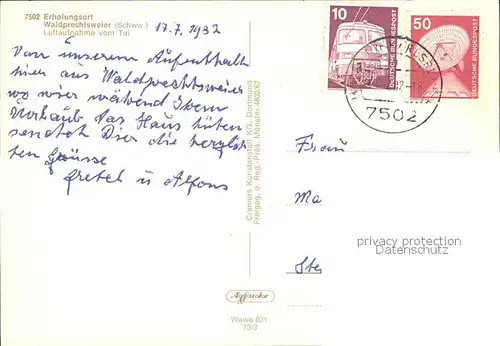 7502 Erholungsort
Waldprechtsweier (Schww.)
Luftaufnahme vom Tal
17.7.1982
Von unserem Aufenthalt
hier aus Waldprechtsweier
wo wir während Ihrem
Urlaub das Haus hüten
sendet Dir die herzlich
ten Grüsse
Gretel u Alfons
Cramers Kunstanstalt KG, Dortmund
Freigeg. d. Reg.-Präs. Münster
10
DEUTSCHE BUNDESPOST
50
DEUTSCHE BUNDESPOST
7502
Frau
Ma
Ste
privacy protection
Datenschutz
73/3